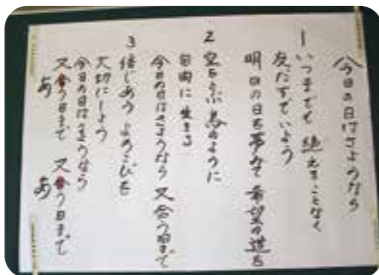 今日の日はさようなら
1 いつまでも 絶えることなく
友だちでいよう
明日の日を夢みて 希望の道を
2 空をとぶ鳥のように
自由に 生きる
今日の日はさようなら 又会う日まで
3 信じあう よろこびを
大切にしよう
今日の日はさようなら
又会う日まで 又会う日まで
あ あ